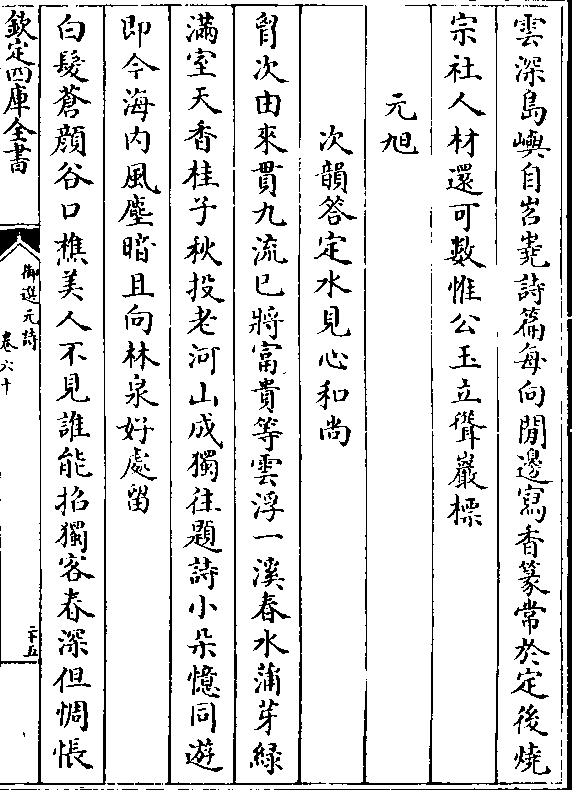 雲深島嶼自岧嶤詩篇每向閒邊寫香篆常於定後燒
宗社人材還可數惟公玉立聳巖標
元旭
次韻答定水見心和尚
胷次由來貫九流已將富貴等雲浮一溪春水蒲芽緑
滿室天香桂子秋投老河山成獨往題詩小朵憶同遊
即今海內風塵暗且向林泉好處留
白髮蒼顔谷口樵美人不見誰能招獨客春深但惆悵
欽定四庫全書
御選元詩
卷六十
二十五